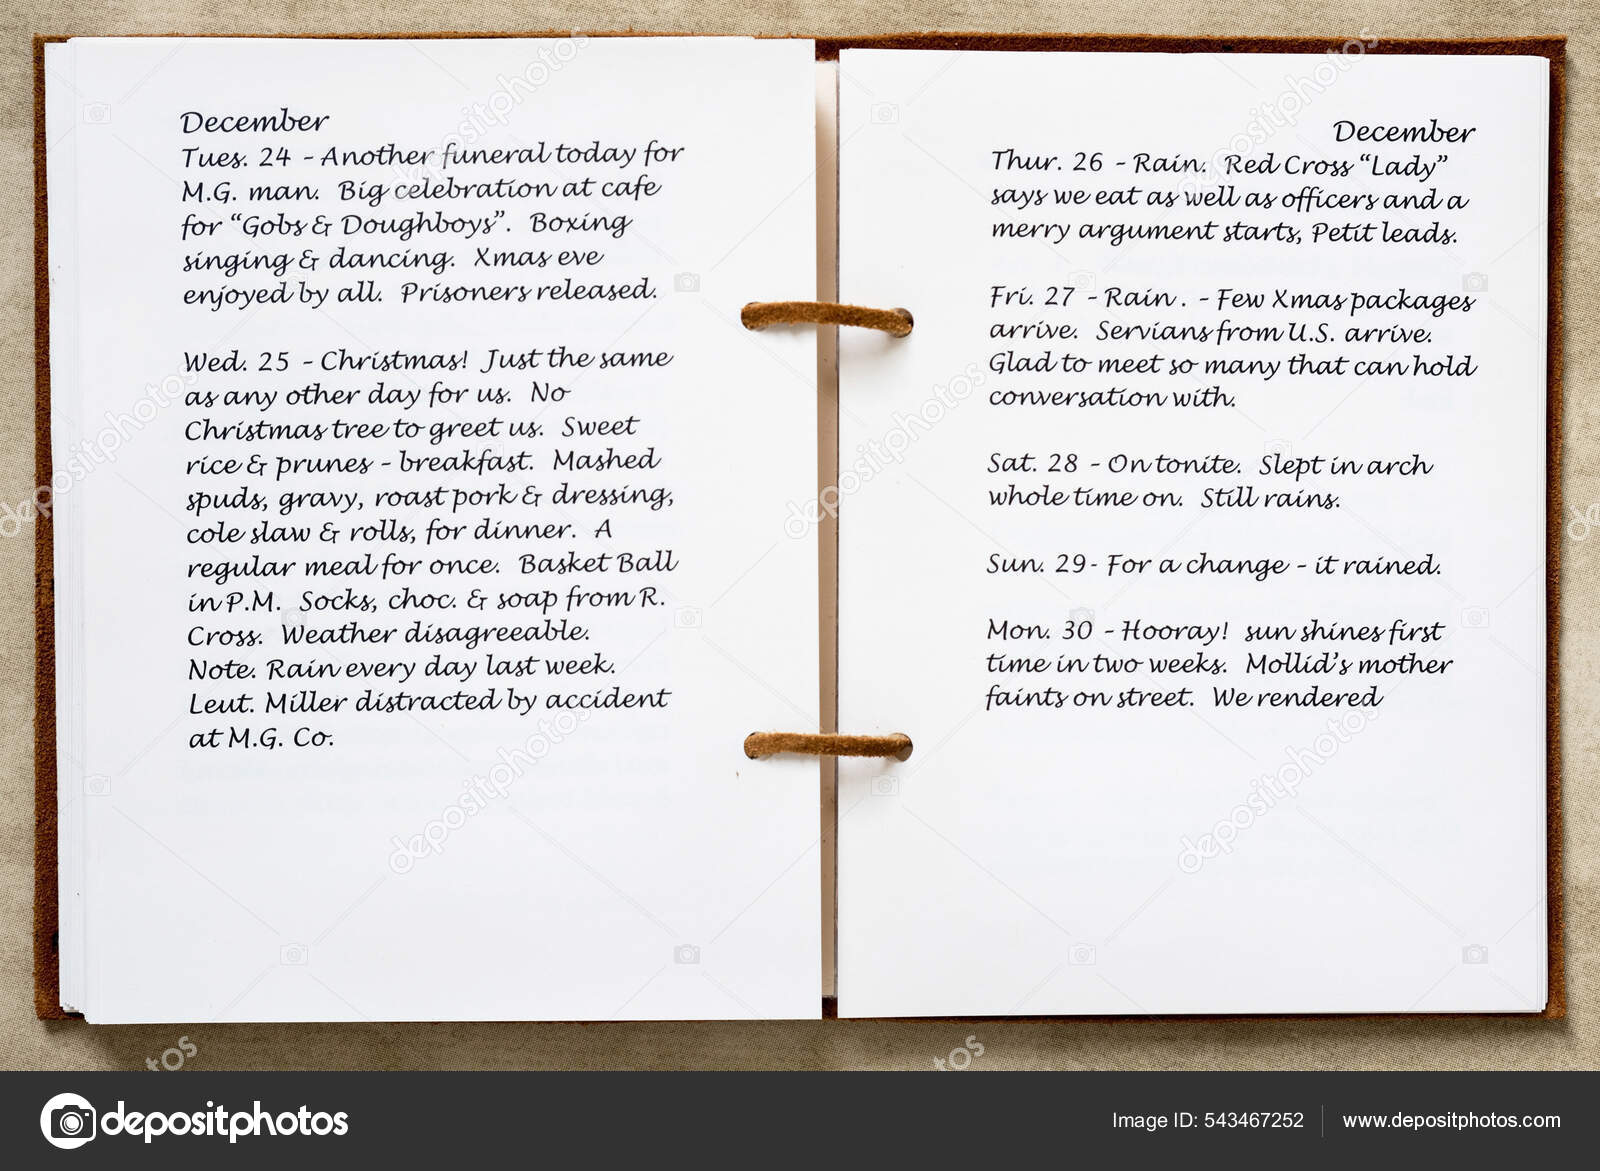 December
Tues. 24 - Another funeral today for
M.G. man. Big celebration at cafe
for “Gobs & Doughboys”. Boxing
singing & dancing. Xmas eve
enjoyed by all. Prisoners released.
Wed. 25 - Christmas! Just the same
as any other day for us. No
Christmas tree to greet us. Sweet
rice & prunes - breakfast. Mashed
spuds, gravy, roast pork & dressing,
cole slaw & rolls, for dinner. A
regular meal for once. Basket Ball
in P.M. Socks, choc. & soap from R.
Cross. Weather disagreeable.
Note. Rain every day last week.
Leut. Miller distracted by accident
at M.G. Co.
December
Thur. 26 - Rain. Red Cross “Lady”
says we eat as well as officers and a
merry argument starts, Petit leads.
Fri. 27 - Rain . - Few Xmas packages
arrive. Servians from U.S. arrive.
Glad to meet so many that can hold
conversation with.
Sat. 28 - On tonite. Slept in arch
whole time on. Still rains.
Sun. 29- For a change - it rained.
Mon. 30 - Hooray! sun shines first
time in two weeks. Mollid's mother
faints on street. We rendered
depositphotos
Image ID: 543467252 www.depositphotos.com